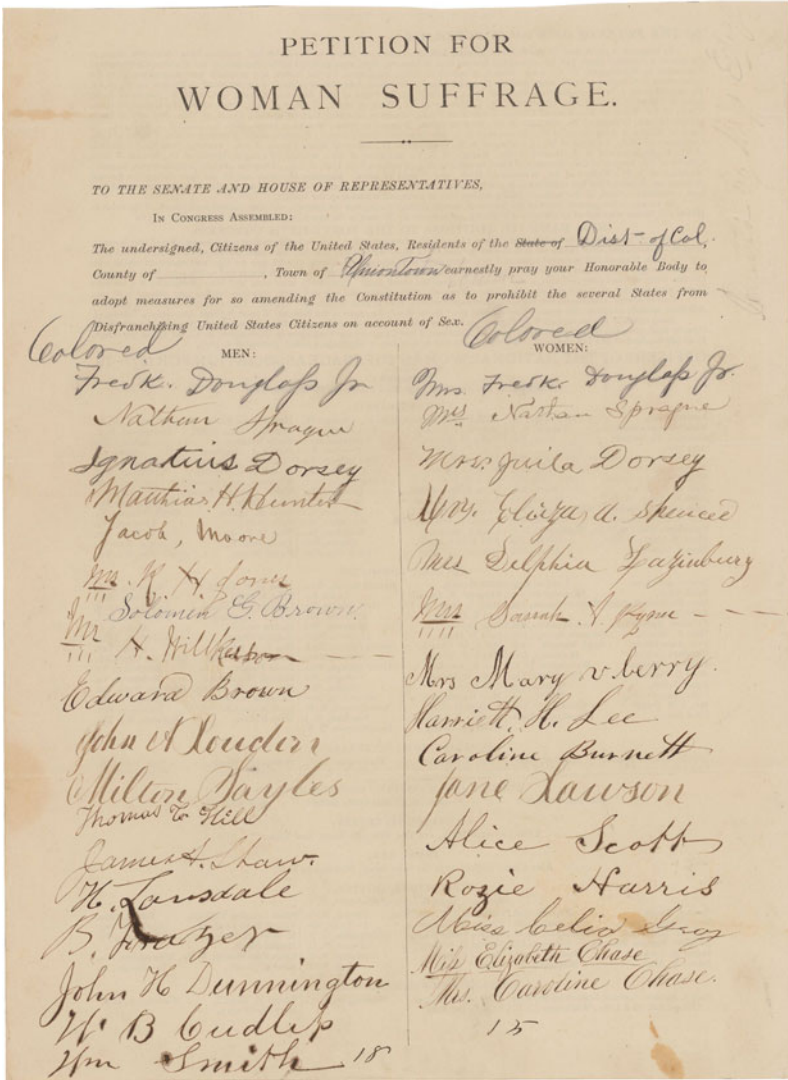 PETITION FOR
WOMAN SUFFRAGE.
TO THE SENATE AND HOUSE OF REPRESENTATIVES,
IN CONGRESS ASSEMBLED:
The undersigned, Citizens of the United States, Residents of the State of Dist of Col,
County of , Town of Uniontown earnestly pray your Honorable Body to
adopt measures for so amending the Constitution as to prohibit the several States from
Disfranchising United States Citizens on account of Sex.
Colored
MEN:
Fredk. Douglass Jr
Nathan Sprague
Ignatius Dorsey
Matthias H. Hunter
Jacob, Moore
Mr. R. H. Jones
Solomon G. Brown.
Mr H.
Edward Brown
John N Louden
Milton Sayles
Thomas Hill
James A. Shaw.
H. Lansdale
B.
John H Dunnington
W B Cudlip
Wm Smith 18
Colored
WOMEN:
Mrs. Fredk Douglass Jr.
Mrs Nathan Sprague
Mrs. Juila Dorsey
Mrs. Eliza, A. Spencer
Mrs Delphia
Mrs Sarah J.
Mrs Mary v. berry.
Harriett, H. Lee
Caroline Burnett
Jane Lawson
Alice Scott
Rozie Harris
Miss Celia Gray
Miss Elizabeth Chase
Mrs. Caroline Chase.
15